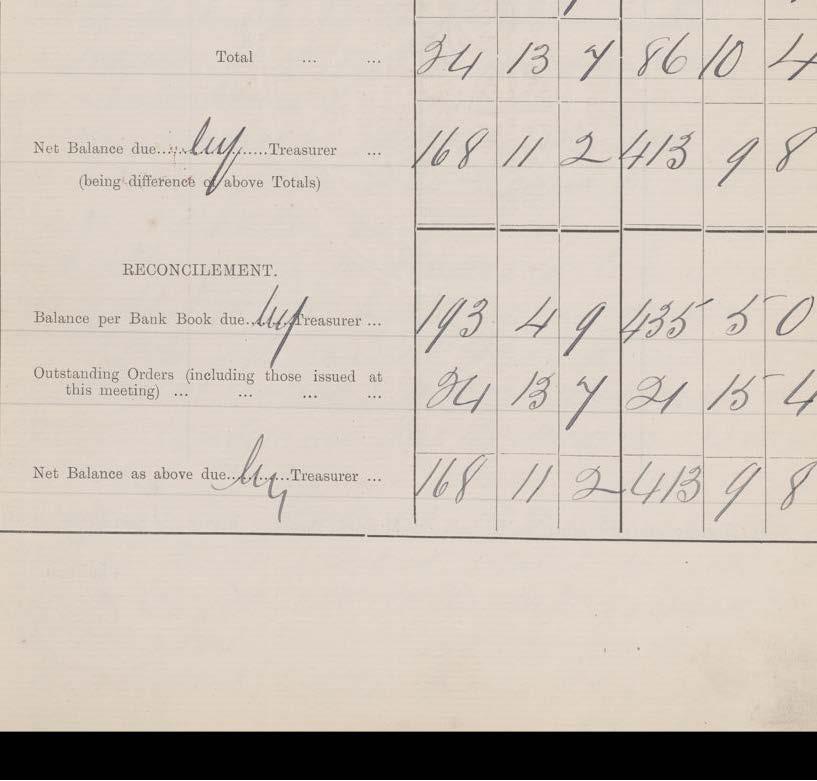 Total ... ... 24 13 7 86 10 4
Net Balance due.....by.....Treasurer ... 168 11 2 413 9 8
(being difference of above Totals)
RECONCILEMENT.
Balance per Bank Book due..by..Treasurer ... 193 4 9 435 5 0
Outstanding Orders (including those issued at
this meeting) ... ... ... ... 24 13 7 21 15 4
Net Balance as above due..by..Treasurer ... 168 11 2 413 9 8